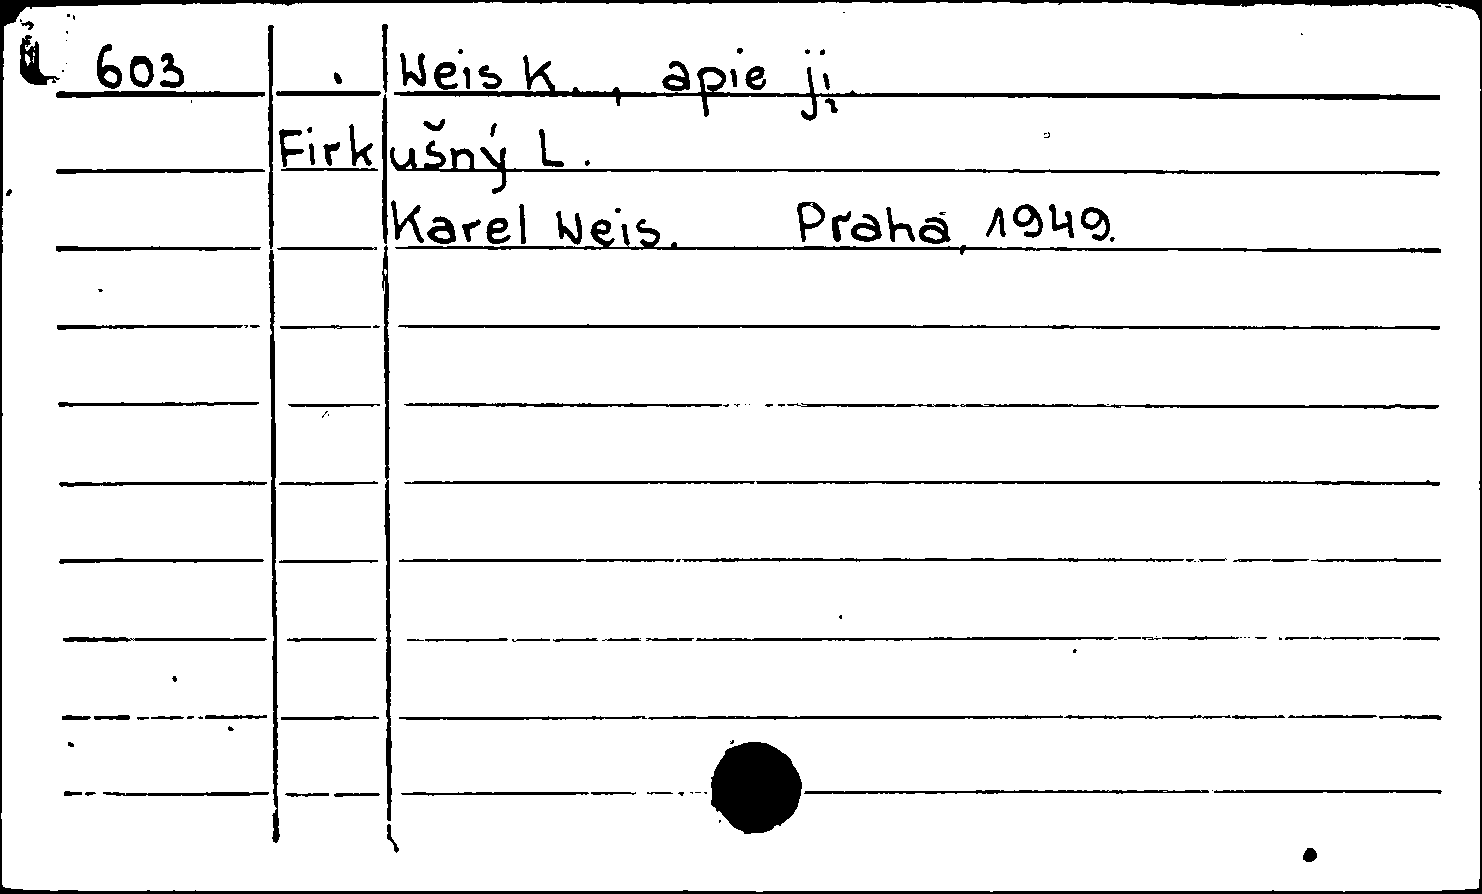 603 Weis K., apie jį.
Firkušný L.
Karel Weis. Praha, 1949.